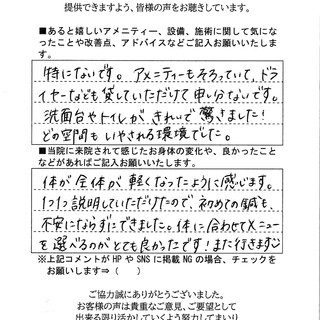 提供できますよう、皆様の声をお聴きしています。
■あると嬉しいアメニティー、設備、施術に関して気にな
ったことや改善点、アドバイスなどご記入お願いいたしま
す。
特にないです。アメニティーもそろっていて、ドラ
イヤーなども貸していただけて申し分ないです。
洗面台やトイレが、きれいで驚きました!
どの空間もいやされる環境でした。
■当院に来院されて感じたお身体の変化や、良かったこと
などがあればご記入お願いいたします。
体が全体が軽くなったように感じます。
1つ1つ説明していただけたので、初めての鍼も、
不安にならずにできました。体に合わせてメニュー
を選べるのがとても良かったです!また行きます
※上記コメントがHPやSNSに掲載NGの場合、チェックを
お願いします⇒( )
ご協力誠にありがとうございました。
お客様の声は貴重なご意見、ご要望として
出来る限り活かしていくよう努力してまいり